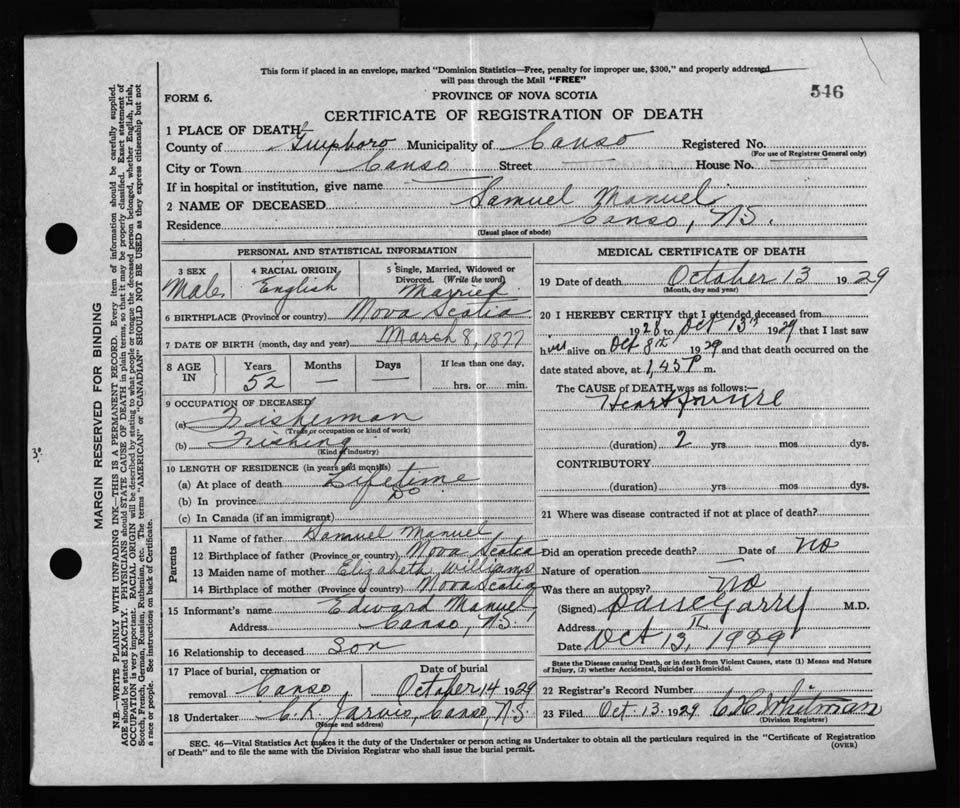 This form if placed in an envelope, marked "Dominion Statistics—Free, penalty for improper use, $300," and properly addressed
will pass through the Mail "FREE"
546
FORM 6.
PROVINCE OF NOVA SCOTIA
CERTIFICATE OF REGISTRATION OF DEATH
1 PLACE OF DEATH
County of Guysboro Municipality of Canso Registered No.
(For use of Registrar General only)
City or Town Canso Street House No.
If in hospital or institution, give name
2 NAME OF DECEASED Samuel Manuel
Residence Canso, N.S.
(Usual place of abode)
PERSONAL AND STATISTICAL INFORMATION
3 SEX Male
4 RACIAL ORIGIN English
5 Single, Married, Widowed or Divorced. (Write the word) Married
6 BIRTHPLACE (Province or country) Nova Scotia
7 DATE OF BIRTH (month, day and year) March 8, 1877
8 AGE IN Years 52 Months — Days — If less than one day, hrs. or min.
9 OCCUPATION OF DECEASED
(a) Fisherman
(Trade, or occupation or kind of work)
(b) Fishing
(Kind of industry)
10 LENGTH OF RESIDENCE (in years and months)
(a) At place of death Lifetime
(b) In province Do
(c) In Canada (if an immigrant)
Parents
11 Name of father Samuel Manuel
12 Birthplace of father (Province or country) Nova Scotia
13 Maiden name of mother Elizabeth Williams
14 Birthplace of mother (Province or country) Nova Scotia
15 Informant's name Edward Manuel
Address Canso, N.S.
16 Relationship to deceased Son
17 Place of burial, cremation or Date of burial
removal Canso, October 14 1929
18 Undertaker C. K. Jarvis, Canso, N.S.
(Name and address)
MEDICAL CERTIFICATE OF DEATH
19 Date of death October 13 1929
(Month, day and year)
20 I HEREBY CERTIFY that I attended deceased from
1928 to Oct 13th 1929 that I last saw
h alive on Oct 8th 1929 and that death occurred on the
date stated above, at 1,45 P m.
The CAUSE of DEATH was as follows:—
Heart failure
(duration) 2 yrs. mos. dys.
CONTRIBUTORY
(duration) yrs. mos. dys.
21 Where was disease contracted if not at place of death?
Did an operation precede death? Date of No
Nature of operation
Was there an autopsy? No
(Signed) M.D.
Address
Date Oct 13, th 1929
State the Disease causing Death, or in death from Violent Causes, state (1) Means and Nature
of Injury, (2) whether Accidental, Suicidal or Homicidal.
22 Registrar's Record Number
23 Filed Oct. 13. 1929 Whitman
(Division Registrar)
SEC. 46—Vital Statistics Act makes it the duty of the Undertaker or person acting as Undertaker to obtain all the particulars required in the "Certificate of Registration
of Death" and to file the same with the Division Registrar who shall issue the burial permit.
(OVER)
MARGIN RESERVED FOR BINDING
N.B.—WRITE PLAINLY WITH UNFADING INK—THIS IS A PERMANENT RECORD. Every item of information should be carefully supplied.
AGE should be stated EXACTLY. PHYSICIANS should STATE CAUSE OF DEATH in plain terms, so that it may be properly classified. Exact statement of
OCCUPATION is very important. RACIAL ORIGIN will be described by stating to what people or tongue the deceased person belonged, whether English, Irish,
Scotch, French, German, Russian, Ruthenian, etc. The terms "AMERICAN" or "CANADIAN" SHOULD NOT BE USED as they express citizenship but not
a race or people. See instructions on back of Certificate.